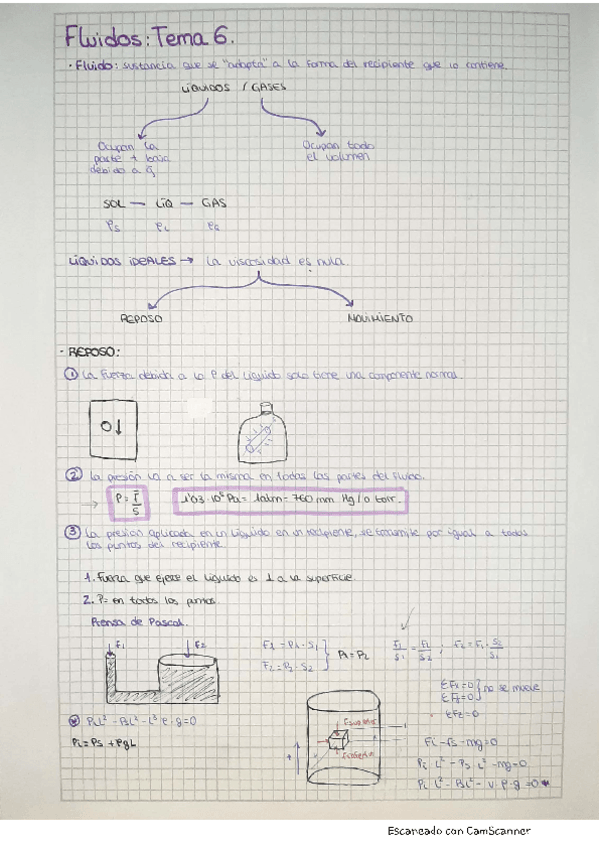 Fluidos: Tema 6.
· Fluido: sustancia que se "adapta" a la forma del recipiente que lo contiene.
LÍQUIDOS / GASES
Ocupan la
parte + baja
debido a
Ocupan todo
el volumen
SOL — LÍQ — GAS
ρs ρL ρG
LÍQUIDOS IDEALES → La viscosidad es nula.
REPOSO
MOVIMIENTO
· REPOSO:
① La fuerza debida a la P del líquido solo tiene una componente normal.
② La presión va a ser la misma en todas las partes del fluido.
P = F/S
1'03·10⁵ Pa = 1atm = 760 mm Hg / o torr.
③ La presión aplicada en un líquido en un recipiente, se transmite por igual a todos
los puntos del recipiente.
1. Fuerza que ejerce el líquido es ⊥ a la superficie.
2. P= en todos los puntos.
Prensa de Pascal.
F1 F2
F1 = P1 · S1
F2 = P2 · S2
P1 = P2
F1/S1 = F2/S2 ; F2 = F1 · S2/S1
ΣFx=0
ΣFy=0
no se mueve
ΣFz=0
PiL² - PsL² - L³ ρ·g=0
Pi = Ps + ρgL
Fi - Fs - mg=0
Pi L² - Ps L² - mg=0
Pi L² - PsL² - v·ρ·g =0
Escaneado con CamScanner